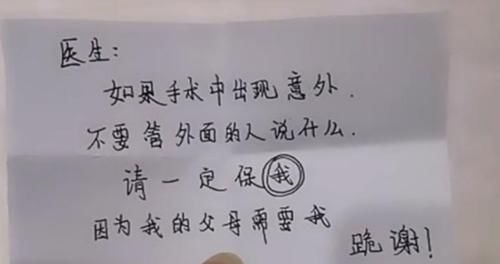 医生:
如果手术中出现意外.
不要管外面的人说什么.
请一定保我
因为我的父母需要我
跪谢!